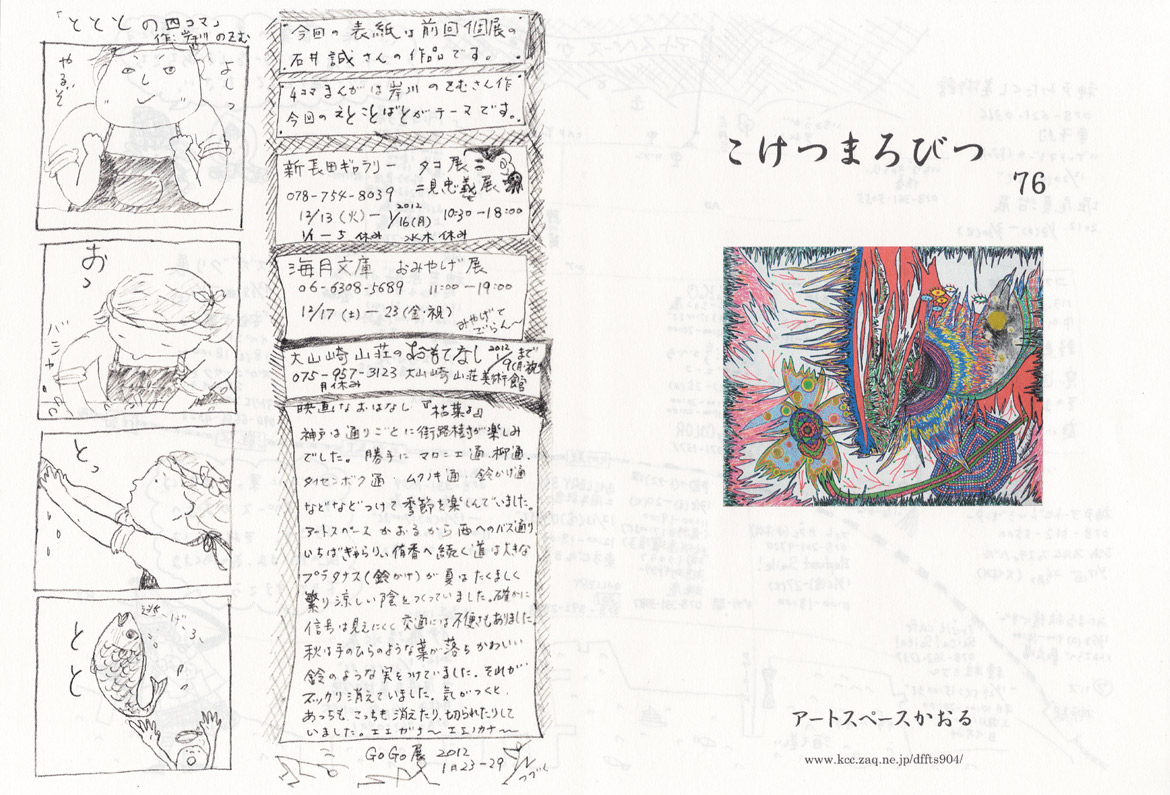 「とととの四コマ」
作:岸川のぞむ
よしっ
やるぞ
おっ
バシャ
とっ
とと
今回の表紙は前回個展の
石井誠さんの作品です。
4コマまんがは岸川のぞむさん作
今回のえとことばとがテーマです。
新長田ギャラリー タコ展
078-754-8039 二見忠義展
12/13(火)ー2012 1/16(月) 10:30-18:00
1/1-5 休み 水木休み
海月文庫 おみやげ展
06-6308-5689 11:00-19:00
12/17(土)-23(金・祝)
みやげて
ごらん
大山崎山荘のおもてなし 2012 1/9(月・祝)まで
075-957-3123 大山崎山荘美術館
月休み
映画なおはなし『枯葉よ』
神戸は通りごとに街路樹が楽しみ
でした。勝手にマロニエ通、柳通、
タイサンボク通 ムクノキ通 鈴かけ通
などなどつけて季節を楽しんでいました。
アートスペースかおるから西へのバス通り、
いちばぎゅらりぃ侑香へ続く道は大きな
プラタナス(鈴かけ)が夏はたくましく
繁り涼しい陰をつくっていました。確かに
信号は見えにくく交通には不便もありました。
秋は手のひらのような葉が落ちかわいい
鈴のような実をつけていました。それが
スッカリ消えていました。気がつくと、
あっちも、こっちも消えたり、切られたりして
いました。エエガナ〜エエノカナ〜
GoGo展 2012
1月23-29 つづく
こけつまろびつ
76
アートスペースかおる
www.kcc.zaq.ne.jp/dffts904/